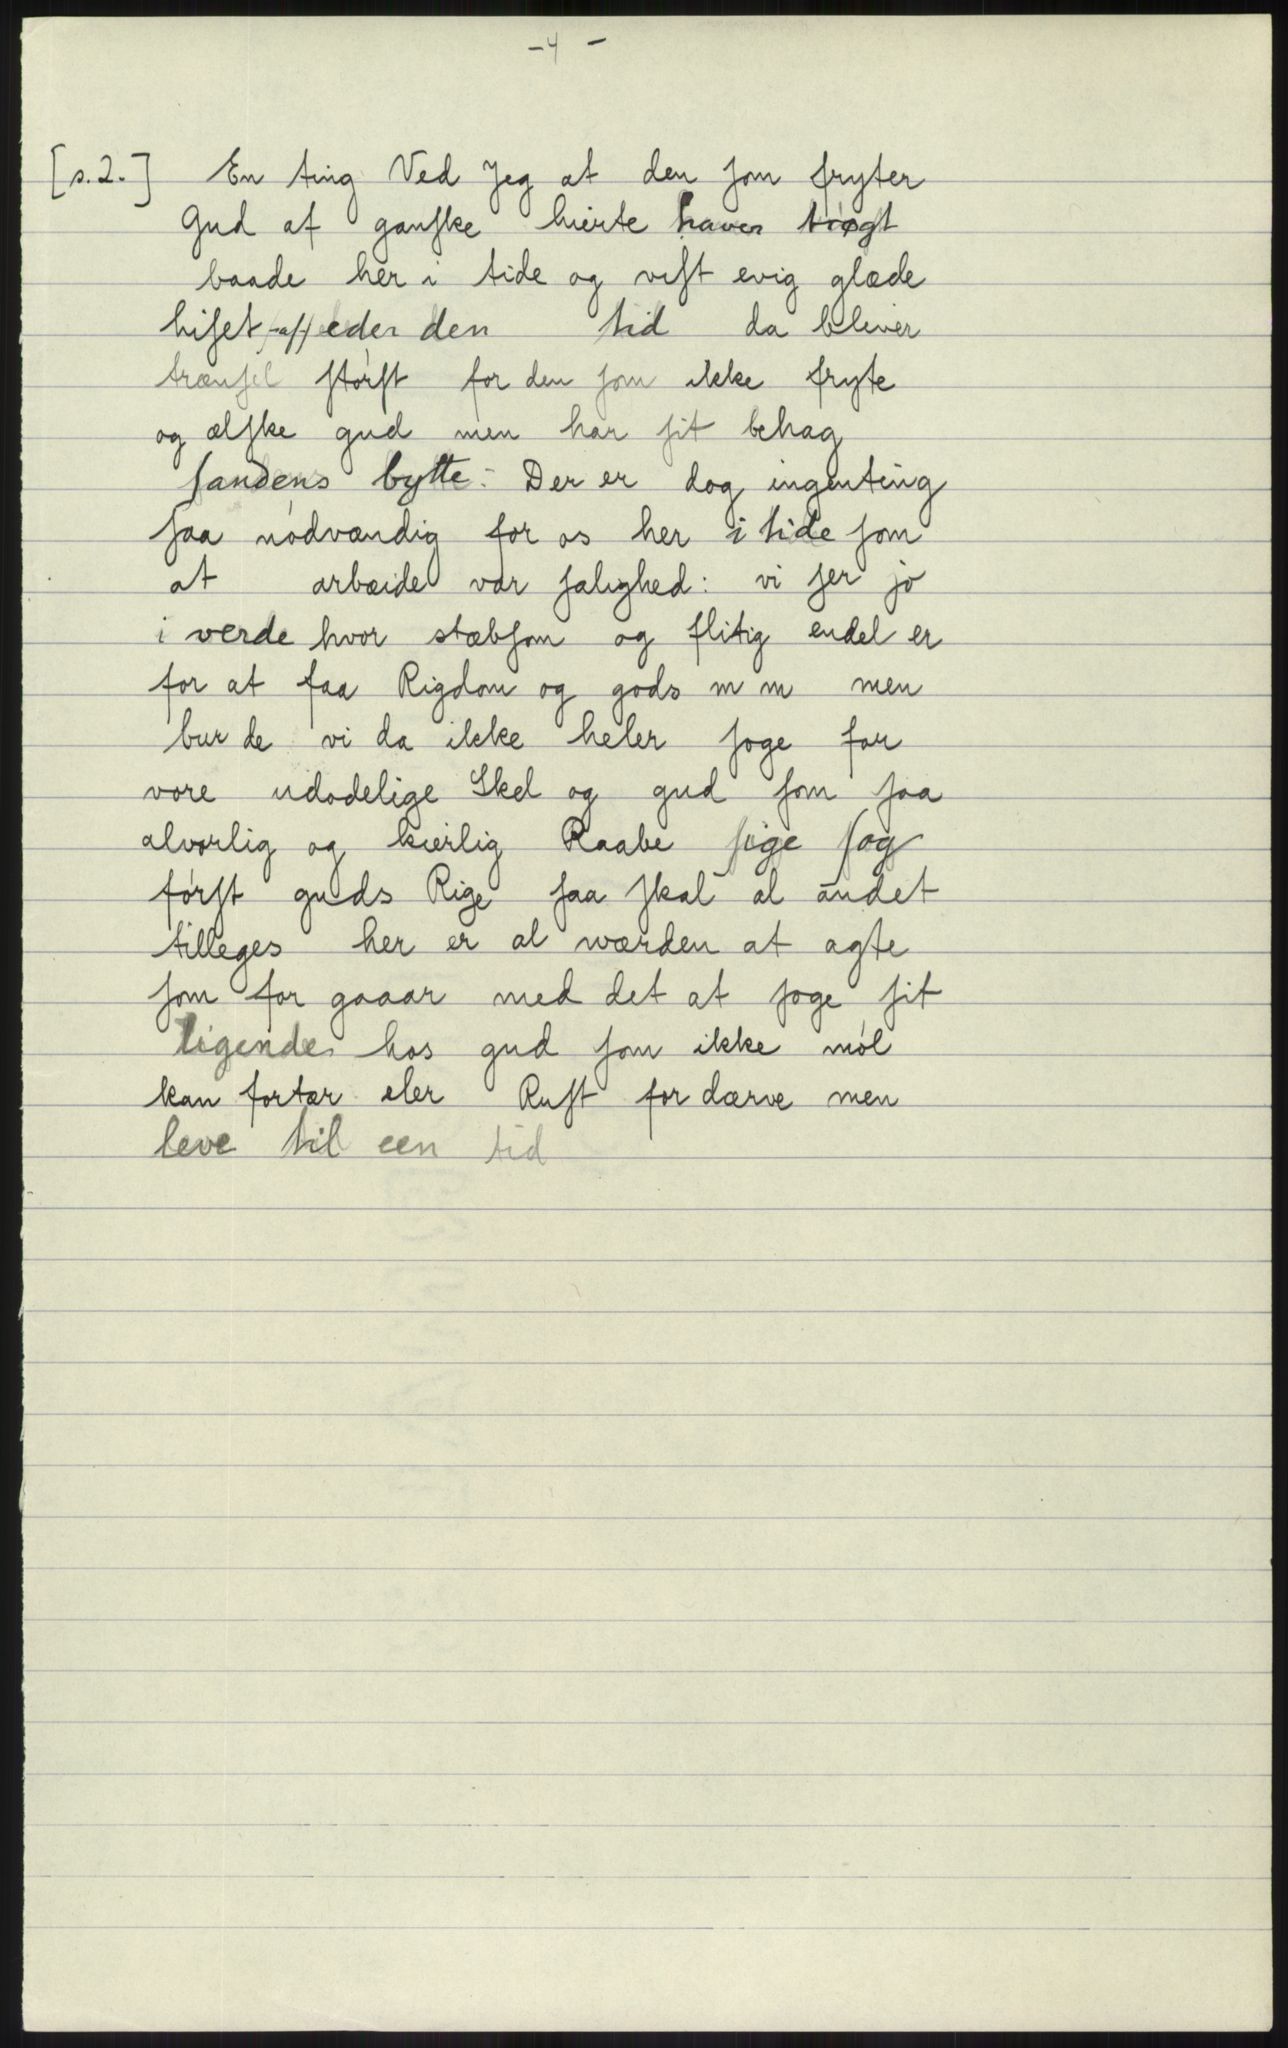 -4-
[s.2.] En ting Ved Jeg at den som fryter
Gud af ganske hierte haver trøgt
baade her i tide og vist evig glæde
hiset eder den tid da bliver
trænsel størst for den som ikke fryte
og ælske gud men har sit behag
fandens bytte: Der er dog ingenting
saa nødvændig for os her i tide som
at arbæide vor salighed: vi ser jo
i verde hvor stæbsom og flitig endel er
for at faa Rigdom og gods m m men
bur de vi da ikke heler søge for
vore udødelige Skel og gud som saa
alvorlig og kierlig Raabe sige søg
først guds Rige saa skal al andet
tilleges her er al wærden at agte
som for gaaar med det at søge sit
ligende hos gud som ikke møl
kan fortær eler Rust for dærve men
leve til een tid